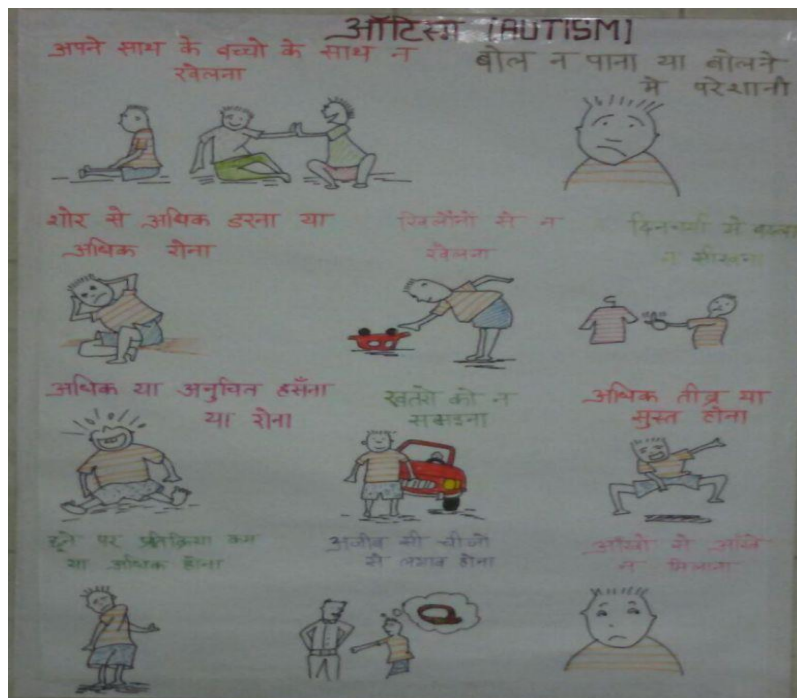 ऑटिस्म [AUTISM]
अपने साथ के बच्चो के साथ न
खेलना
बोल न पाना या बोलने
मे परेशानी
शोर से अधिक डरना या
अधिक रोना
खिलौनो से न
खेलना
दिनचर्या मे बदलाव
न सीखना
अधिक या अनुचित हसँना
या रोना
खतरो को न
समझना
अधिक तीव्र या
सुस्त होना
छूने पर प्रतिक्रिया कम
या अधिक होना
अजीब सी चीजो
से लगाव होना
आँखो से आँखे
न मिलाना